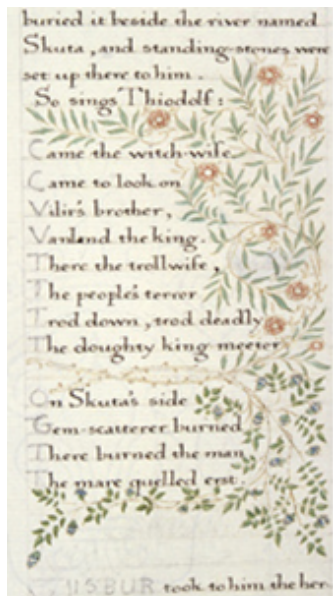 buried it beside the river named
Skuta, and standing-stones were
set up there to him.
So sings Thiodolf:
Came the witch-wife
Came to look on
Vilir's brother,
Vanland the king.
There the trollwife,
The people's terror
Trod down, trod deadly
The doughty king-meeter
On Skuta's side
Gem-scatterer burned
There burned the man
The mare quelled erst.
USBUR took to him the her